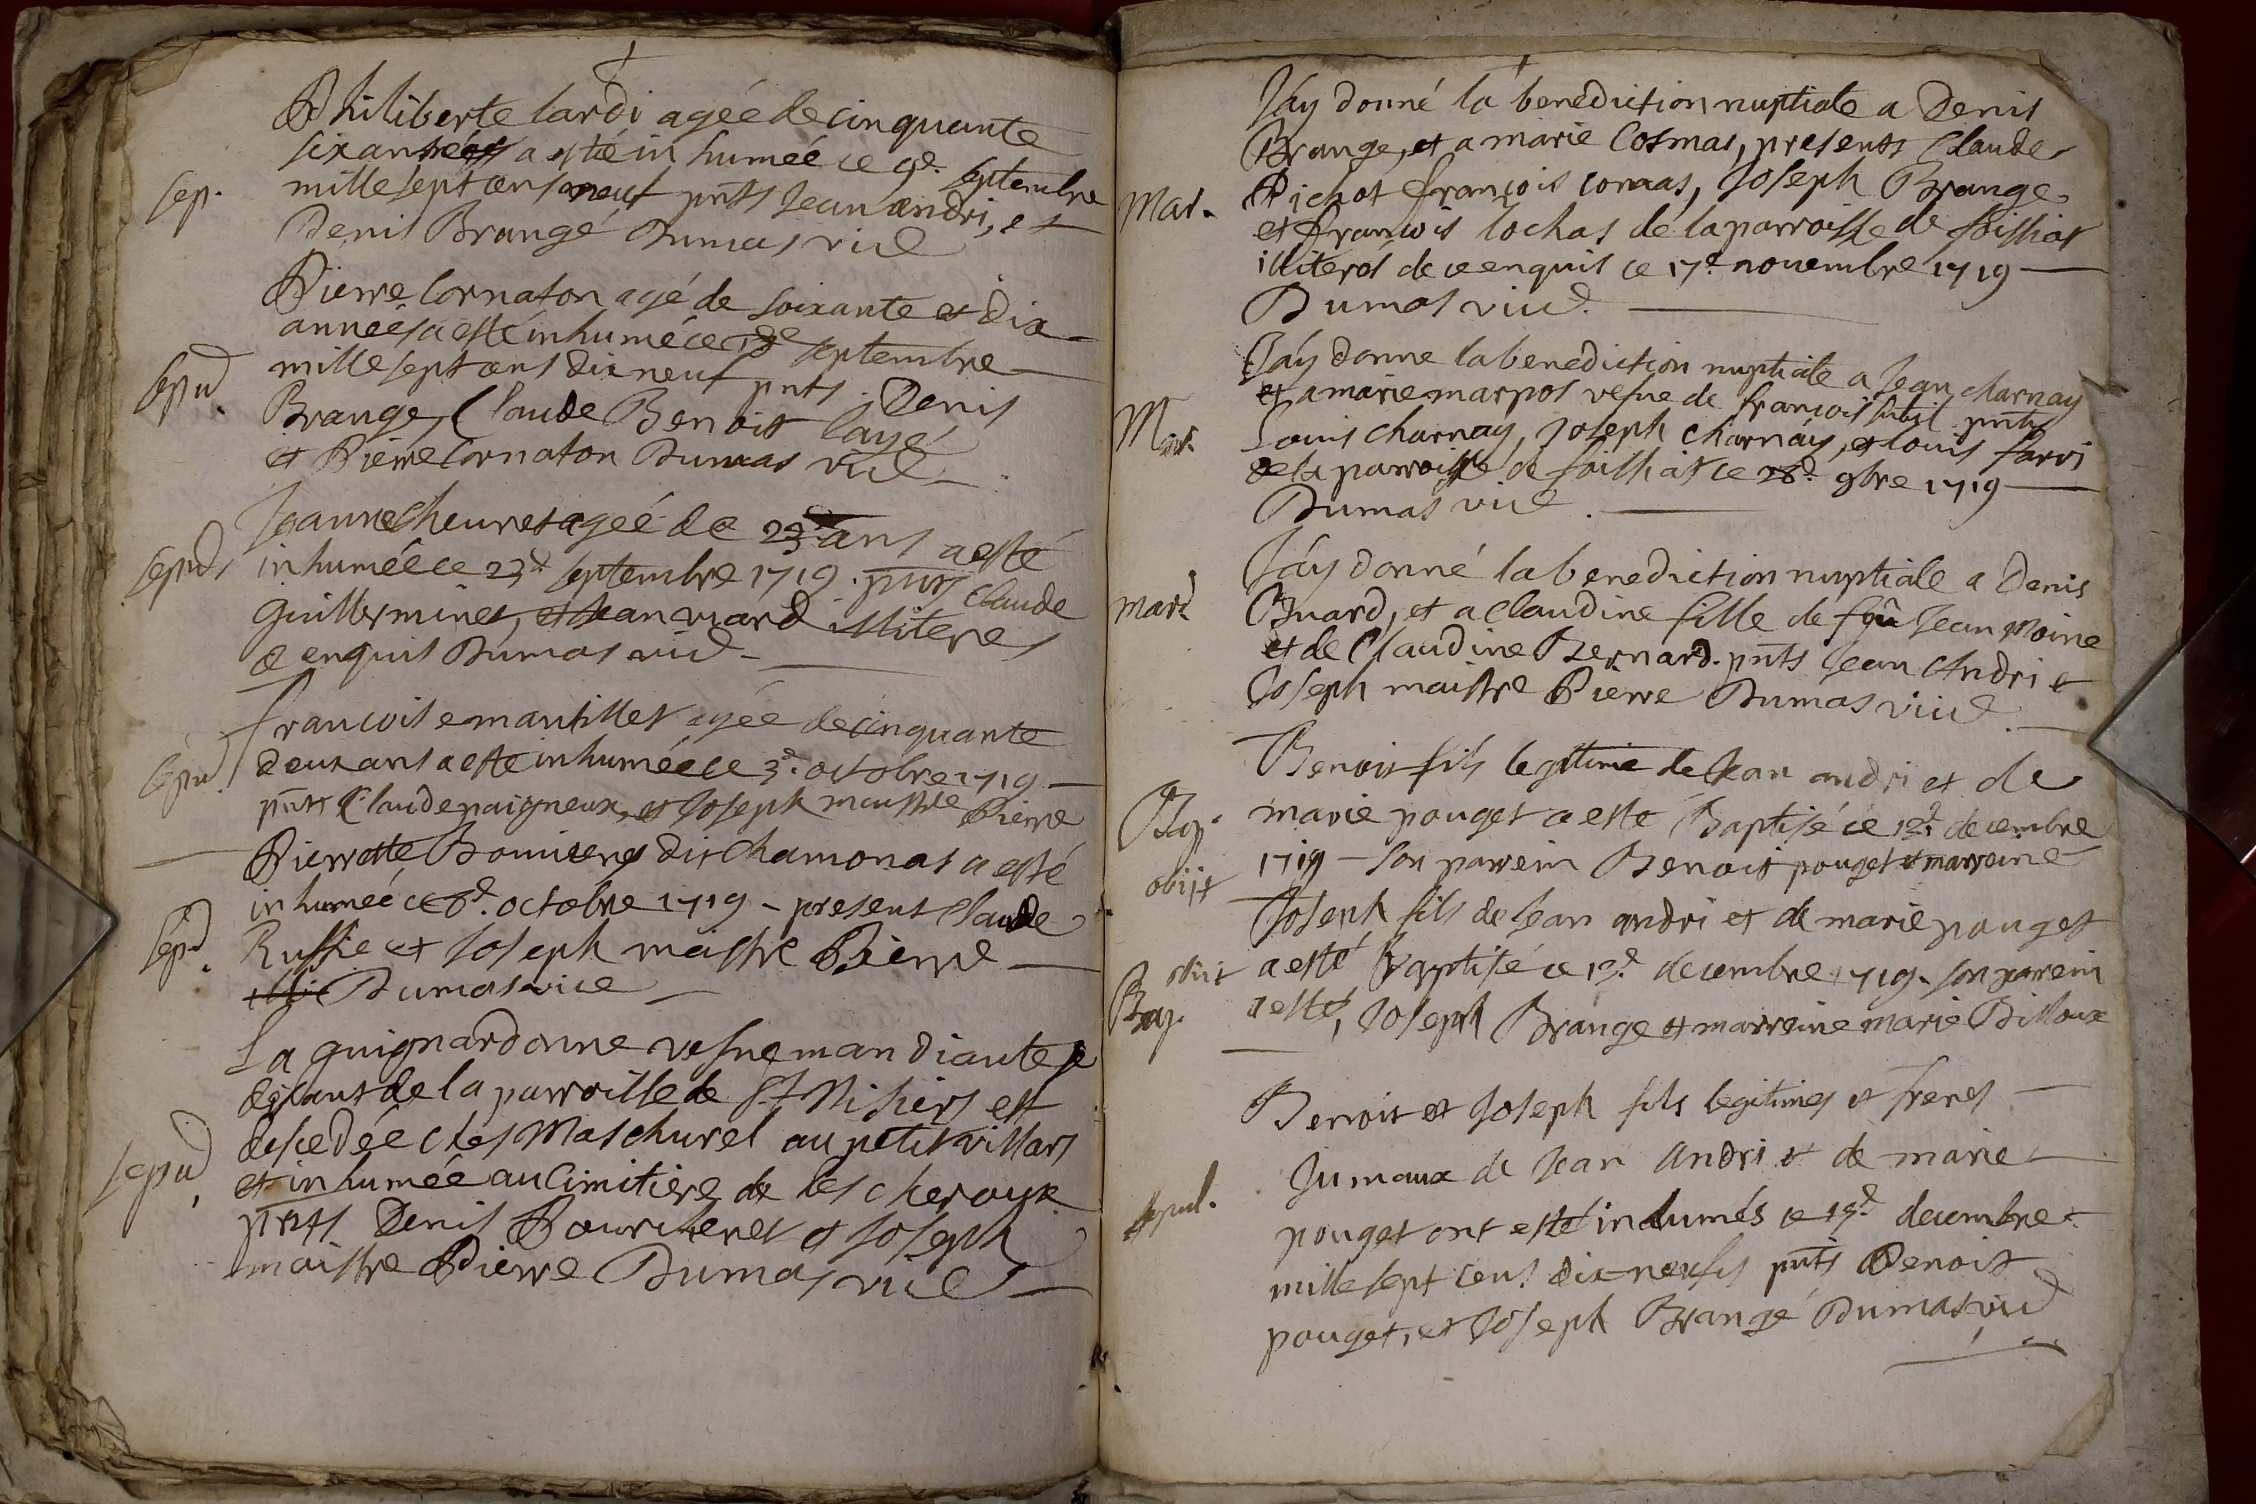 Philiberte lardi agée de cinquante
six années a esté inhumée ce 9e. septembre
sep.
mille sept cens neuf pnts Jean andri, et
Denis Brangé Dumas vic
Pierre Cornaton agé de soixante et dix
années a esté inhumé ce septembre
sepud.
mille sept cens dix neuf pnts Denis
Brange, Claude Benoit layé
et Pierre Cornaton Dumas vic
Jeanne Cheuret agée de 23 ans a esté
sepud.
inhumée ce 23d septembre 1719. pnts Claude
Guillerminet, et Jean viard illiteres
de enquis Dumas vic
francoise mantillet agée de cinquante
sepud.
deux ans a esté inhumée ce 3d. octobre 1719
pnts Claude paigneux, et Joseph maistre Pierre
Pierrette dit Chamonas a esté
inhumée ce 8d. octobre 1719 - present Claude
sepud.
Ruffie et Joseph maistre Pierre
Dumas vice
La guignardonne vefue mandiante se
disant de la parroisse de St Nisiers est
decedée ches Mas churel au petit villars
sepud.
et inhumée au Cimitiere de les cheroux
pnts Denis Bourcheret et Joseph
maistre Pierre Dumas vic
Jáy donné la benediction nuptiale a Denis
Brange, et a marie Cosmas, presents Claude
Mar.
Pichot françois comas, Joseph Brange
et françois lochas de la parroisse de foissiat
illiterés de ce enquis ce 17e novembre 1719
Dumas vic.
Jáy donne la benediction nuptiale a Jean charnay
et a marie marpos vefue de françois pnts
Mar.
Louis charnay, Joseph charnay, et louis farri
de la parroisse de foissiat ce 28d. 9bre 1719
Dumas vic.
Jáy donné la benediction nuptiale a Denis
mard.
Buard, et a Claudine fille de feû Jean Moine
et de Claudine Bernard. pnts Jean Andri et
Joseph maistre Pierre Dumas vic
Benoit fils legitime de Jean andri et de
Bap.
marie pouget a esté Baptisé ce 12d. decembre
1719 - son parrein Benoit pouget et marreine
obiit
Joseph fils de Jean andri et de marie pouget
obiit
a esté Baptisé ce 12d. decembre 1719. son parrein
Bap.
a esté, Joseph Brange et marreine marie Billoux
Benoit et Joseph fils legitimes et freres
Jumaux de Jean andri et de marie
sepul.
pouget ont esté inhumés ce decembre
mille sept cens dix-neufs pnts Benoit
pouget, et Joseph Brangé Dumas vic